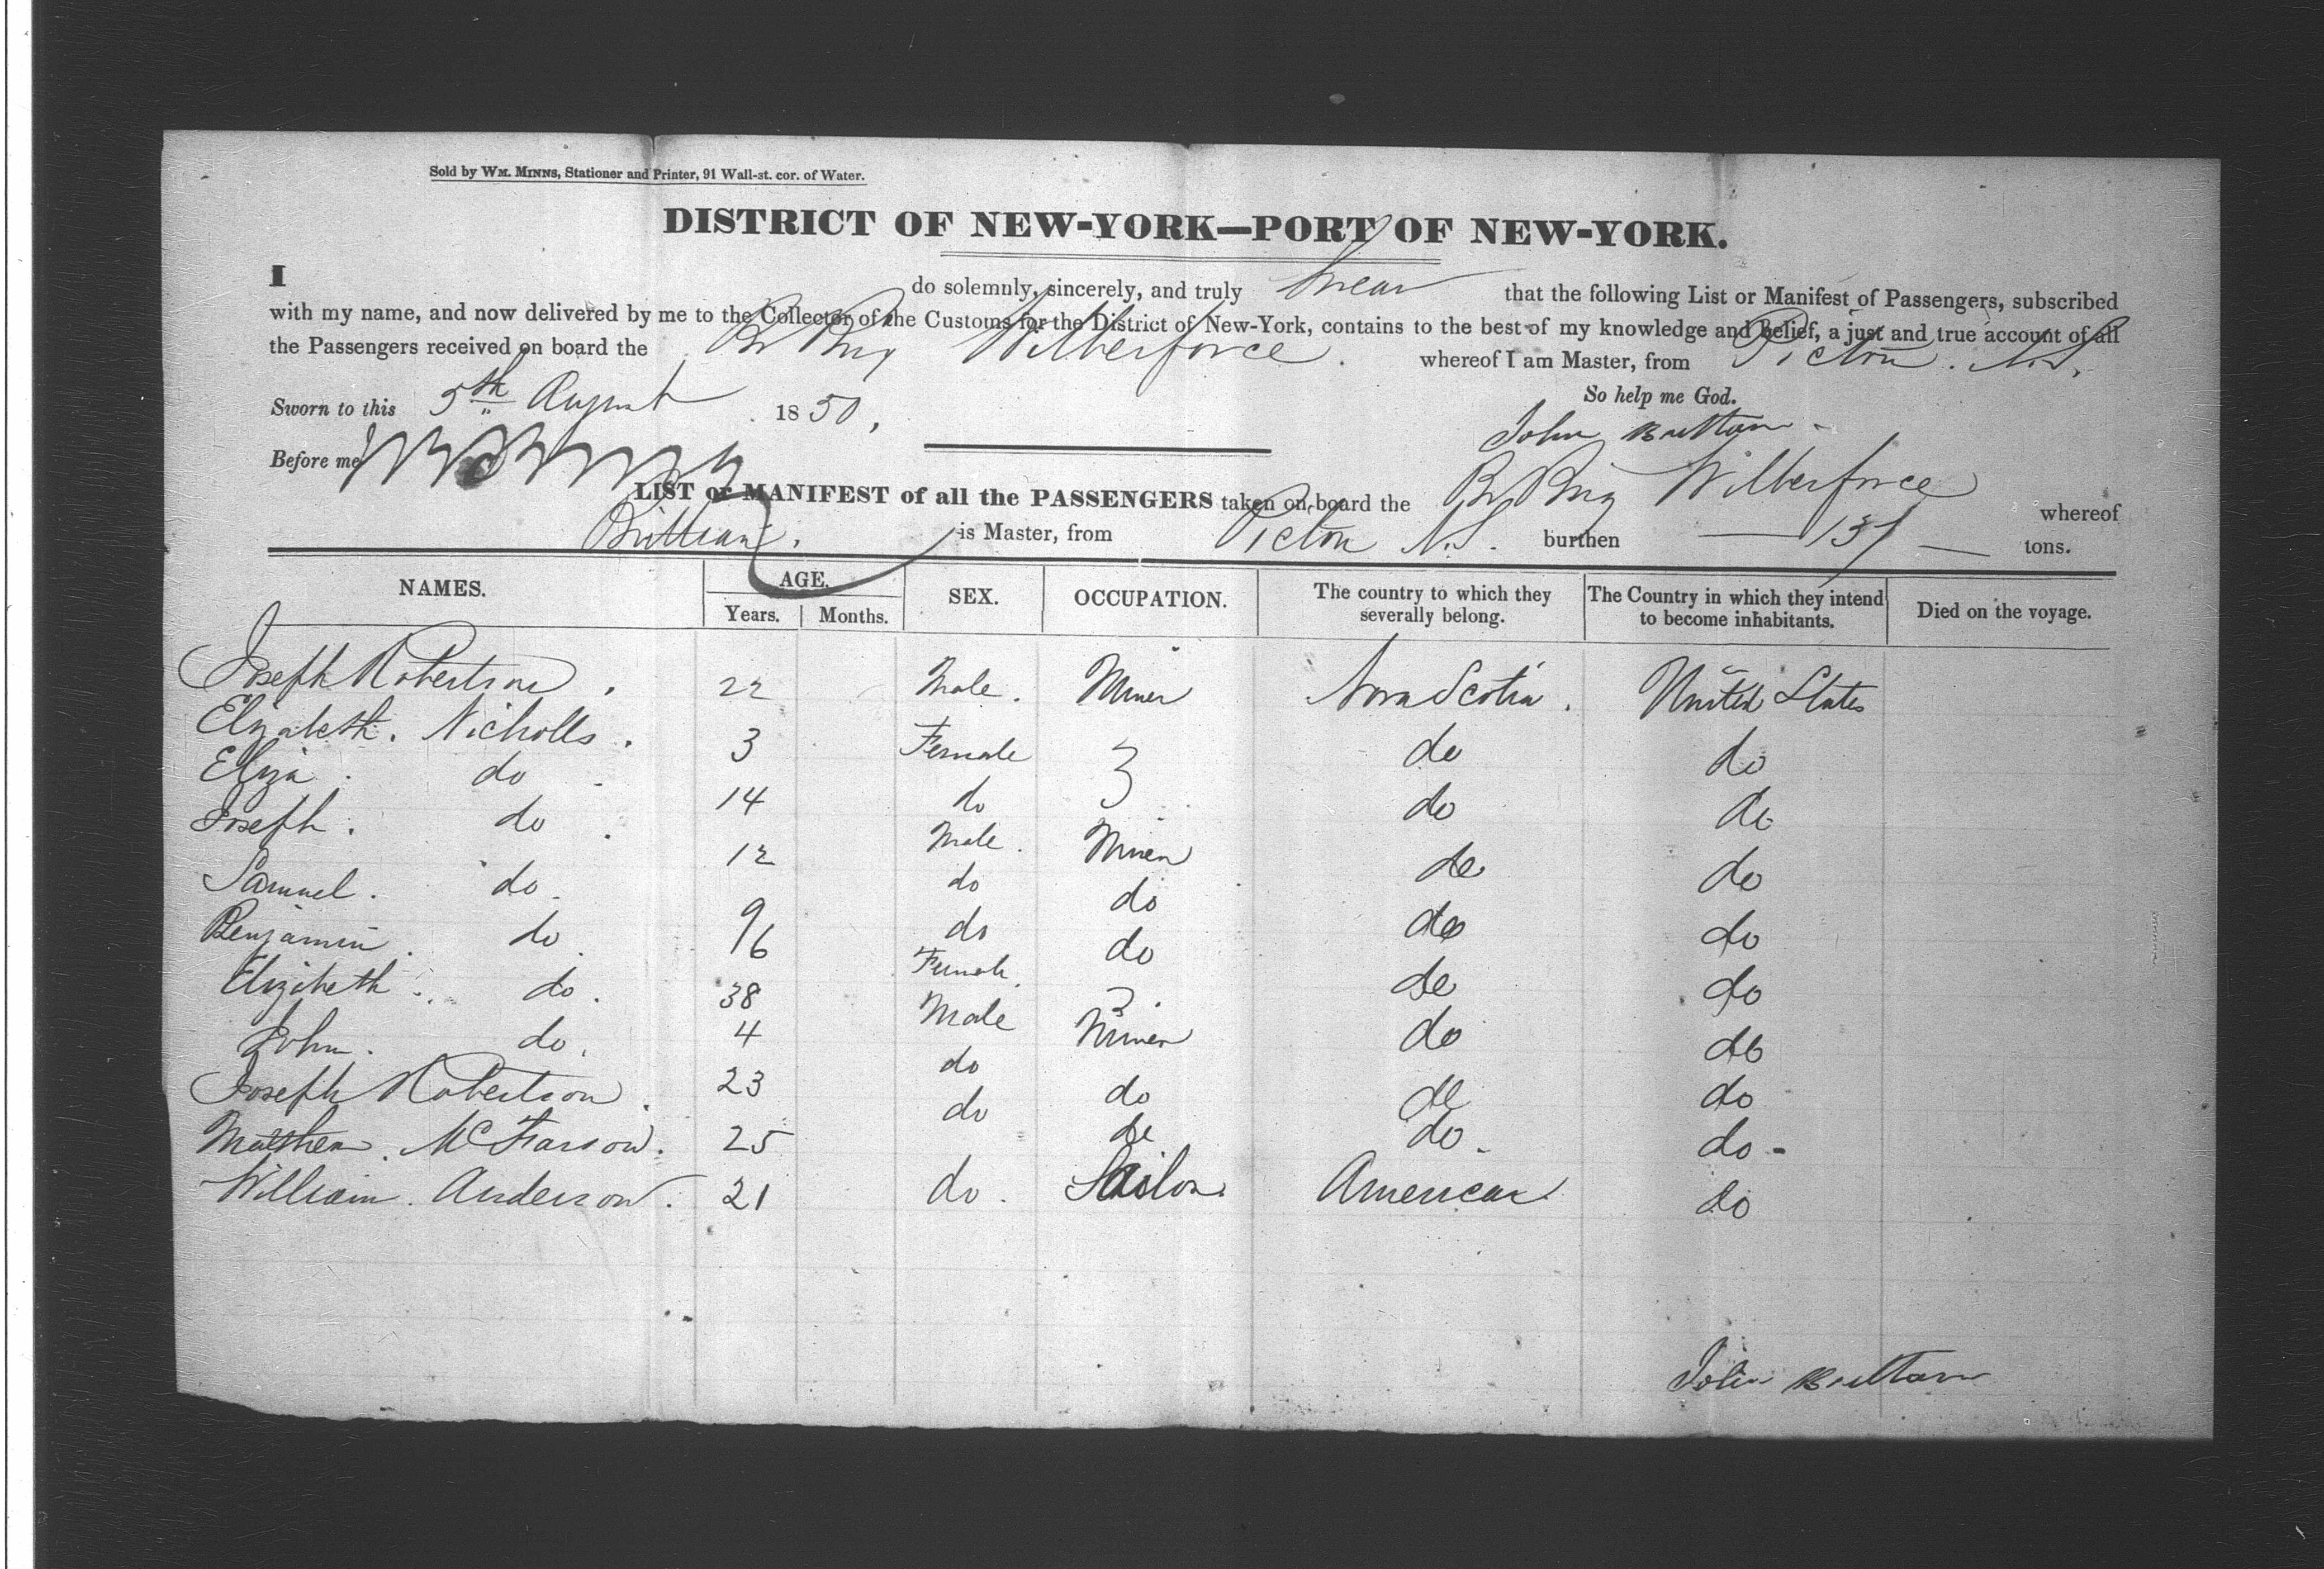 Sold by WM. MINNS, Stationer and Printer, 91 Wall-st. cor. of Water.
DISTRICT OF NEW-YORK—PORT OF NEW-YORK.
I do solemnly, sincerely, and truly swear that the following List or Manifest of Passengers, subscribed
with my name, and now delivered by me to the Collector of the Customs for the District of New-York, contains to the best of my knowledge and Belief, a just and true account of all
the Passengers received on board the Br Brig Wilberforce. whereof I am Master, from Pictou. N.S.
Sworn to this 5th August 1850, So help me God.
John Brittan
Before me
LIST or MANIFEST of all the PASSENGERS taken on board the Br Brig Wilberforce whereof
Brittian. is Master, from Pictou N.S. burthen 137 tons.
NAMES. AGE. SEX. OCCUPATION. The country to which they severally belong. The Country in which they intend to become inhabitants. Died on the voyage.
Years. Months.
Joseph Robertson. 22 Male. Miner Nova Scotia. United States
Elizabeth. Nicholls. 3 Female do do
Eliza. do 14 do do do
Joseph. do. 12 Male. Miner do do
Samuel. do. 9 do do do do
Benjamin. do. 6 do do do do
Elizibeth. do. 38 Female do do
John. do. 4 Male Miner do do
Joseph Robertson. 23 do do do do
Matthew. McFarson. 25 do do do. do -
William. Anderson. 21 do. Sailor. American do
John Brittan